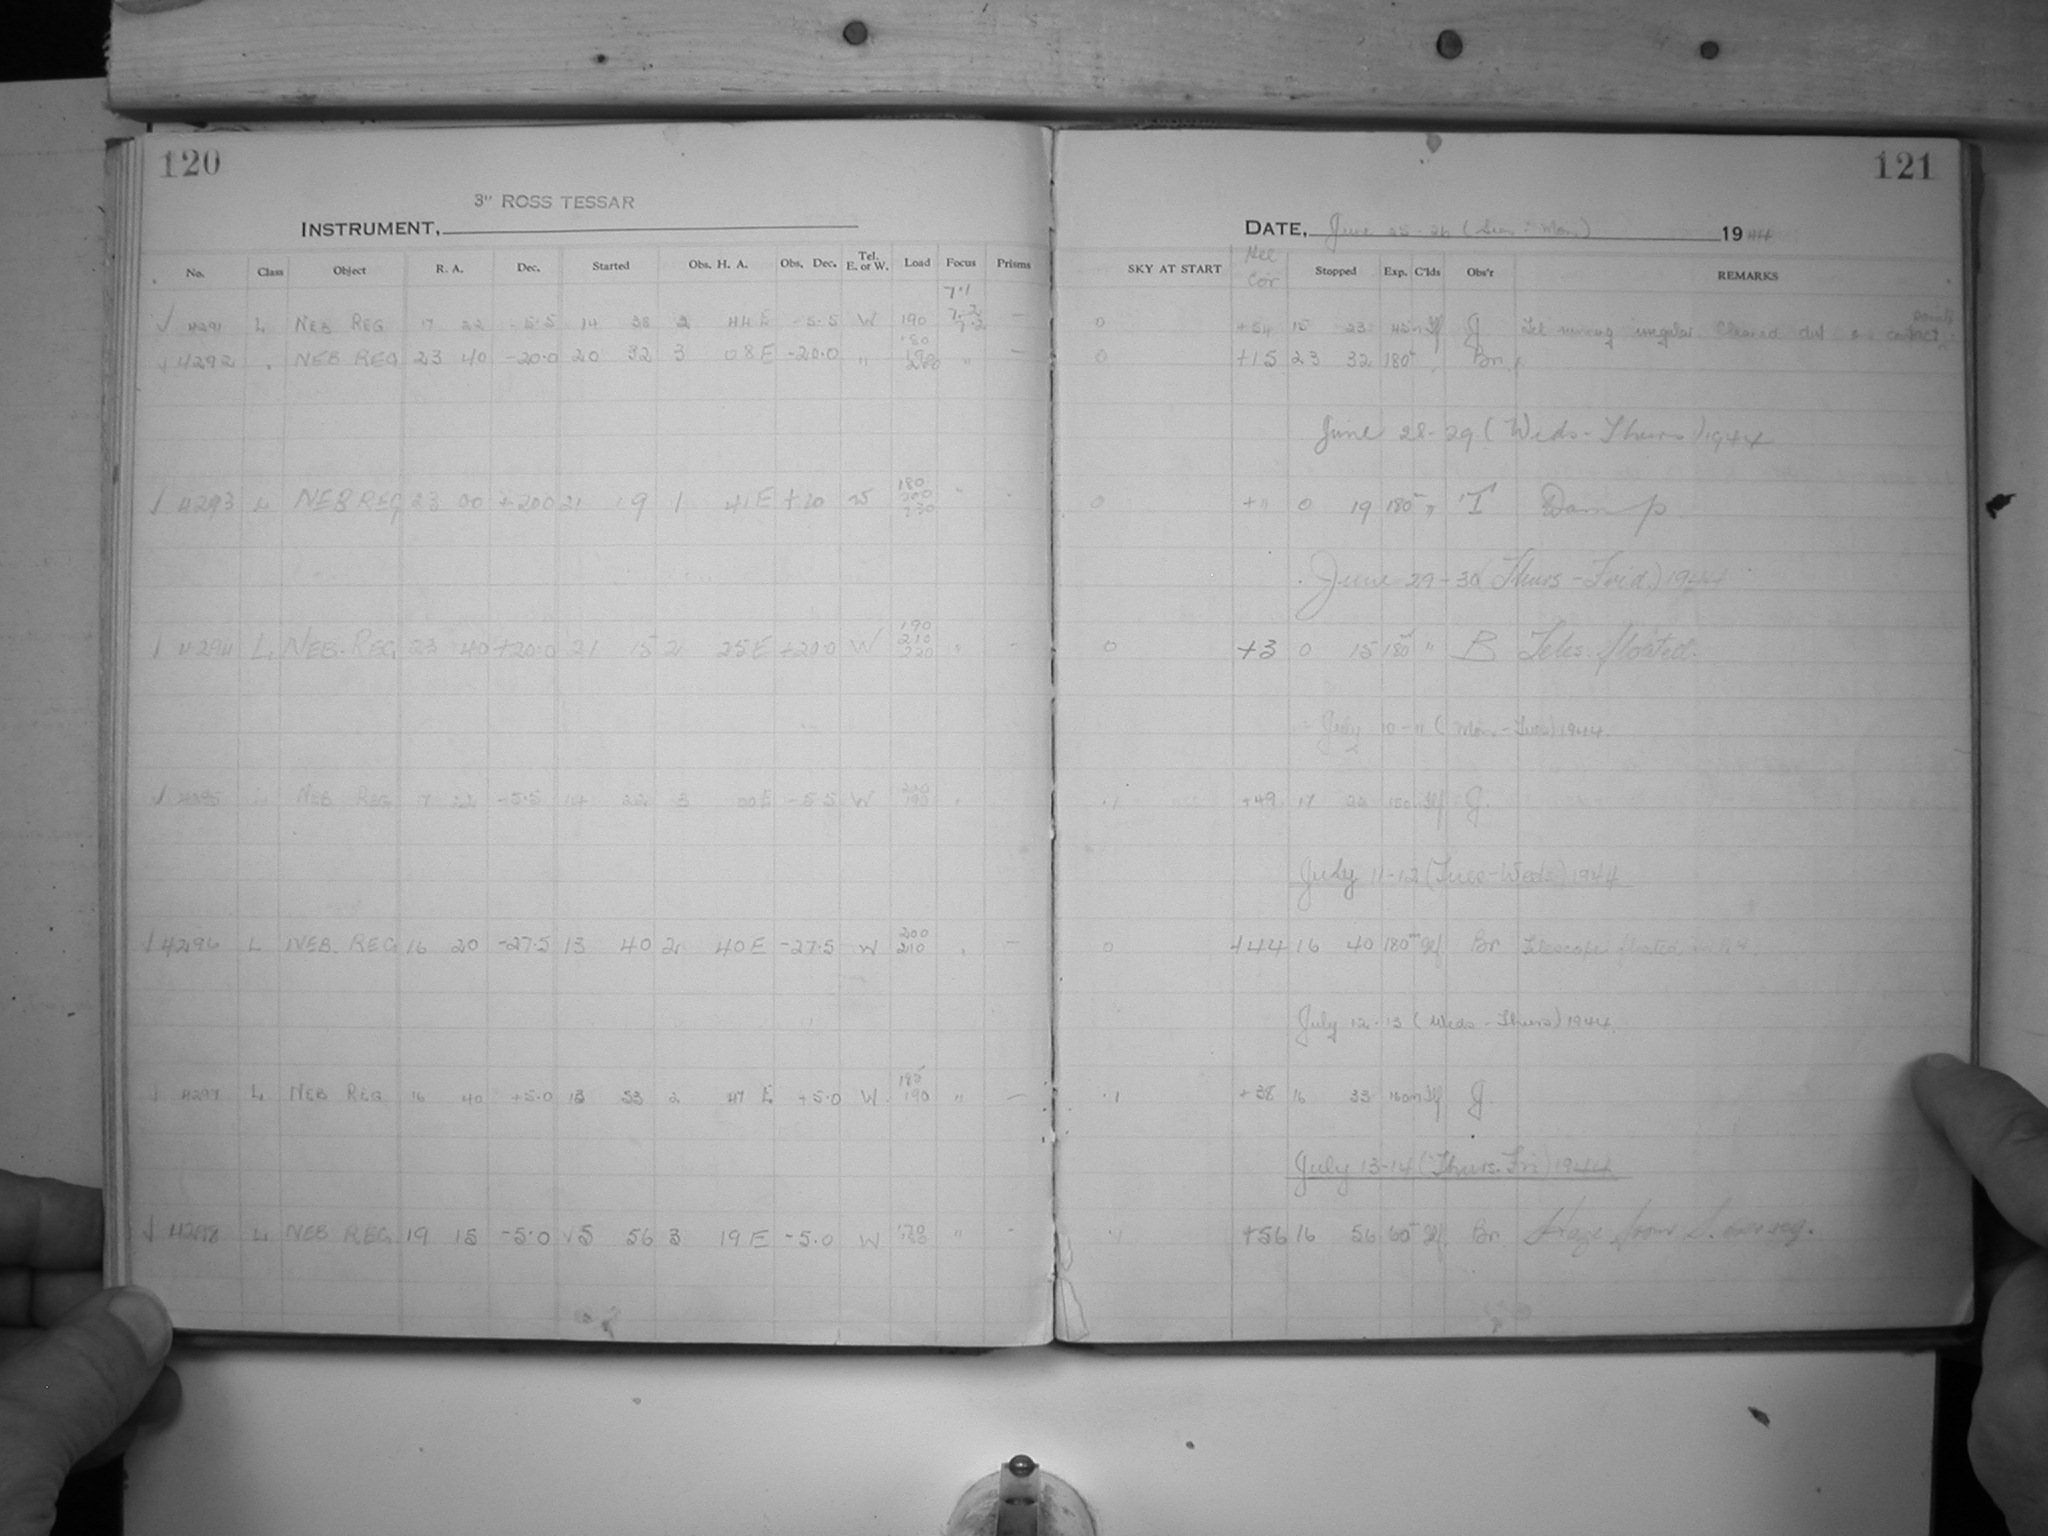 120
3" ROSS TESSAR
INSTRUMENT,
No. Class Object R. A. Dec. Started Obs. H. A. Obs. Dec. Tel. E. or W. Load Focus Prisms
7.1
7.2
✓ 4291 L NEB REG 17 22 -5.5 14 38 2 44 E -5.5 W 190 7.2 —
180
✓ 4292 " NEB REG 23 40 -20.0 20 32 3 08 E -20.0 " 190 " —
200
180
✓ 4293 L NEB REG 23 00 +20.0 21 19 1 41 E +20 W 200 " -
190
✓ 4294 L NEB. REG 23 40 +20.0 21 15 2 25 E +20.0 W 210 " -
220
200
✓ 4295 L NEB REG 17 22 -5.5 14 22 3 00 E -5.5 W 190 "
200
✓ 4296 L NEB. REG 16 20 -27.5 13 40 2 40 E -27.5 W 210 " —
185
✓ 4297 L NEB REG 16 40 +5.0 13 53 2 47 E +5.0 W 190 " —
✓ 4298 L NEB REG 19 15 -5.0 15 56 3 19 E -5.0 W " -
121
DATE, June 25-26 (Sun - Mon) 1944
SKY AT START Acc Cor Stopped Exp. C'lds Obs'r REMARKS
points
0 +54 15 23 45m J Tel running irregular. Cleared dirt on contact
0 +15 23 32 180m " Br
June 28-29 (Weds-Thurs) 1944
0 +" 0 19 180m " T Damp
June 29-30 (Thurs-Frid.) 1944
0 +3 0 15 180m " B Teles. floated.
July 10-11 (Mon.-Tues) 1944
.1 +49 17 22 180m J.
July 11-12 (Tues-Weds) 1944
0 +44 16 40 180m Br Telescope floated
July 12-13 (Weds-Thurs) 1944
.1 +38 16 33 160m J.
July 13-14 (Thurs-Fri) 1944
.1 +56 16 56 60m Br Haze from